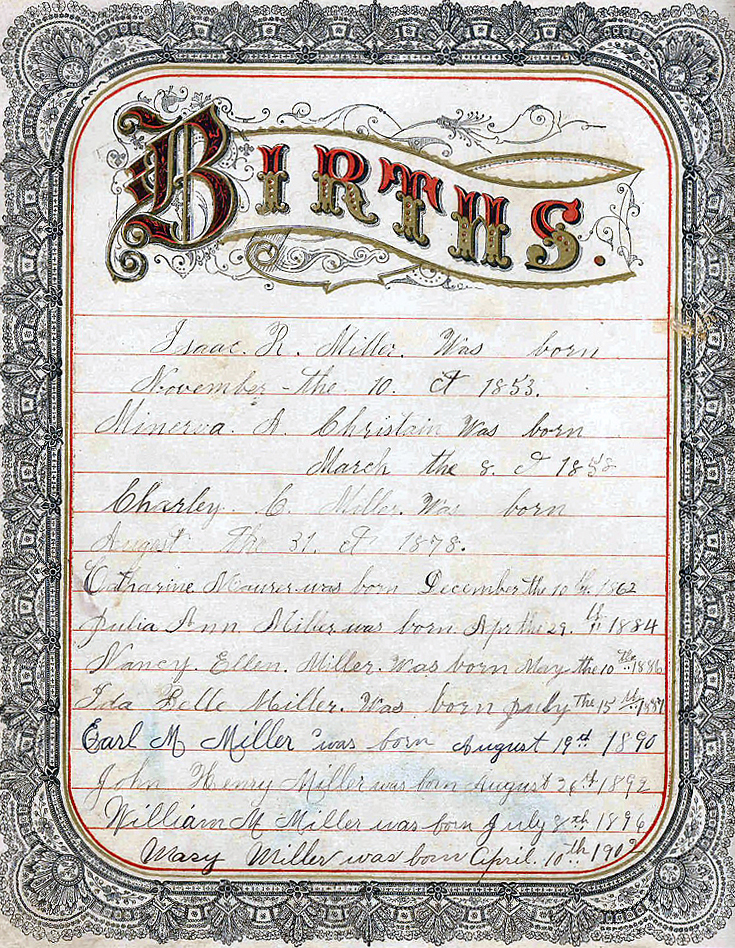 BIRTHS.
Isaac. R. Miller. Was born
November - the 10. ct 1853.
Minerva. A. Christain Was born
March the 8. ct 1858
Charley. C. Miller. Was born
August the 31. ct 1878.
Catharine Maurer was born December the 10 1862
Julia Ann. Miller was born. Apr the 29. th 1884
Nancy. Ellen. Miller. Was born May the 10 th 1886
Ida Belle Miller. Was born July the 15 th 1887
Earl M Miller was born August 19th 1890
John Henry Miller was born August 26th 1892
William M Miller was born July 8th 1896
Mary Miller was born April. 10th